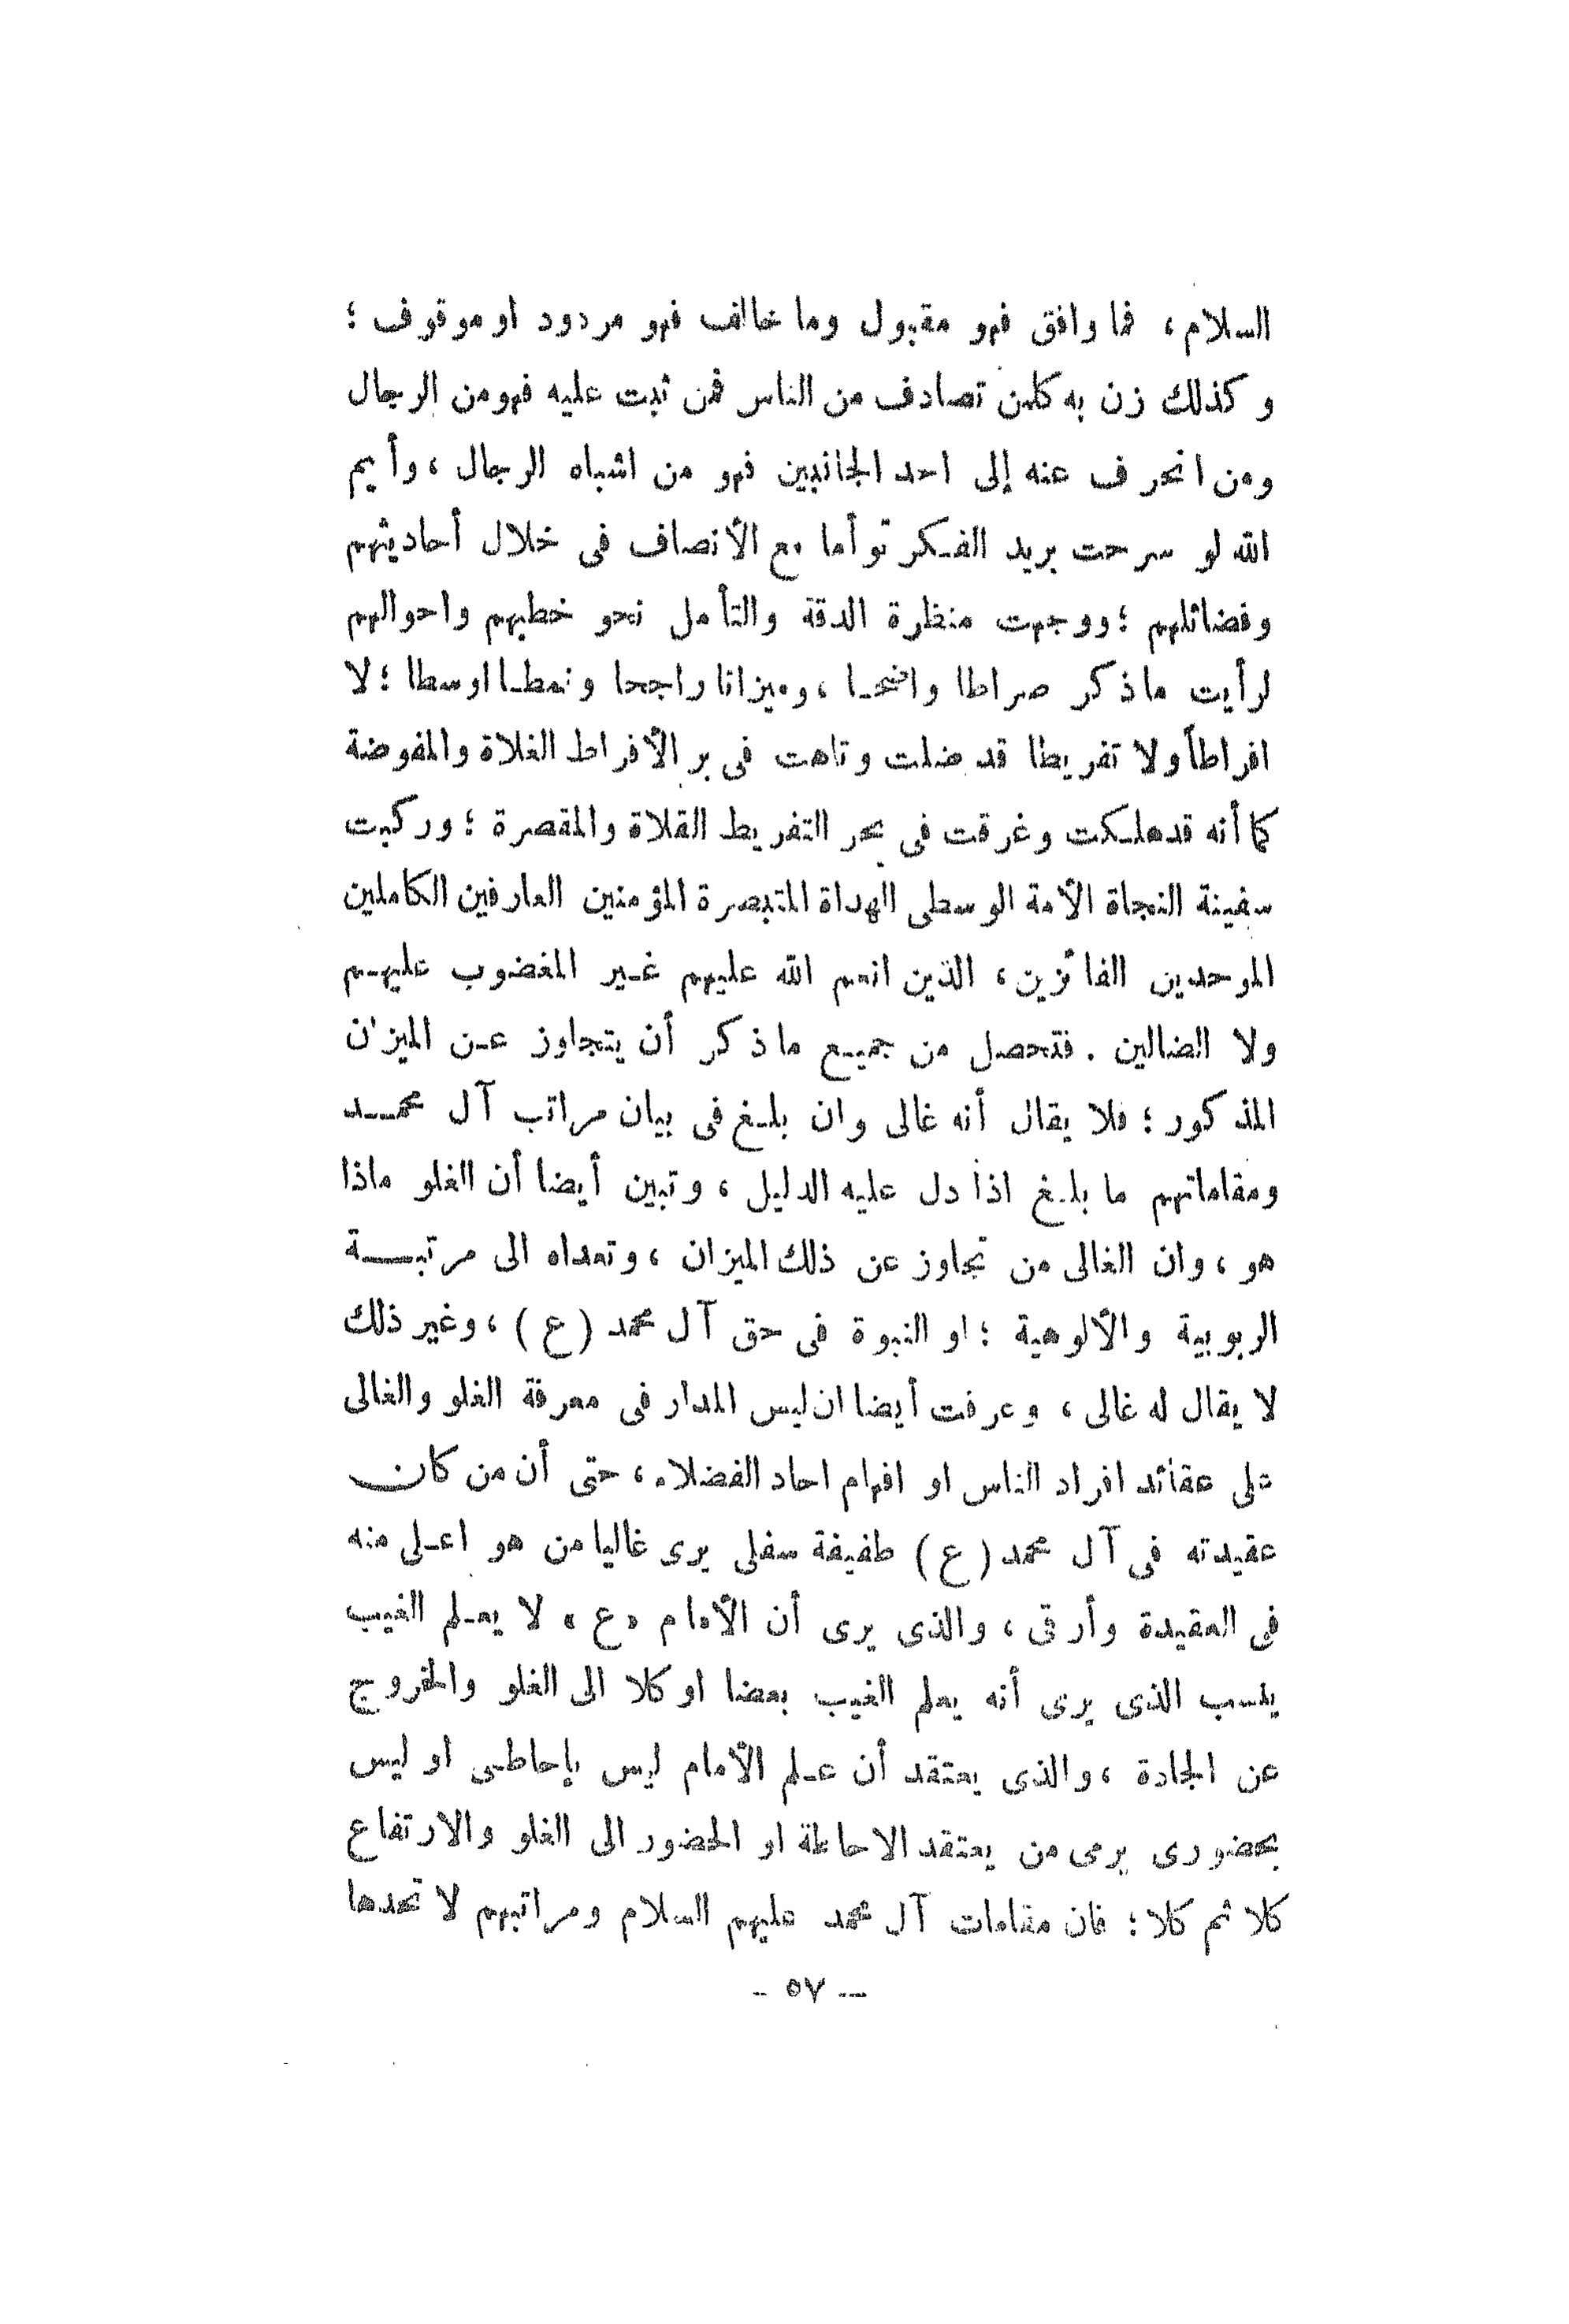 السلام ، فما وافق فهو مقبول وما خالف فهو مردود او موقوف ؛
وكذلك زن به كلمن تصادف من الناس فمن ثبت عليه فهو من الرجال
ومن انحرف عنه إلى احد الجانبين فهو من اشباه الرجال ، وأيم
الله لو سرحت بريد الفكر توأما مع الأنصاف فى خلال أحاديثهم
وفضائلهم ؛ ووجهت منظرة الدقة والتأمل نحو خطبهم واحوالهم
لرأيت ماذكر صراطا واضحا ، وميزانا راجحا ونمطا اوسطا ؛ لا
افراطاً ولا تفريطا قد ضلت وتاهت فى بر الأفراط الغلاة والمفوضة
كما أنه قدهلكت وغرقت فى بحر التفريط القلاة والمقصرة ؛ وركبت
سفينة النجاة الأمة الوسطى الهداة المتبصرة المؤمنين العارفين الكاملين
الموحدين الفائزين ، الذين انعم الله عليهم غير المغضوب عليهم
ولا الضالين . فتحصل من جميع ماذكر أن يتجاوز عن الميزان
المذكور ؛ فلا يقال أنه غالى وان بلغ فى بيان مراتب آل محمد
ومقاماتهم ما بلغ اذا دل عليه الدليل ، وتبين أيضا أن الغلو ماذا
هو ، وان الغالى من تجاوز عن ذلك الميزان ، وتعداه الى مرتبة
الربوبية والألوهية ؛ او النبوة فى حق آل محمد ( ع ) ، وغير ذلك
لا يقال له غالى ، وعرفت أيضا ان ليس المدار فى معرفة الغلو والغالى
على عقائد افراد الناس او افهام احاد الفضلاء ، حتى أن من كان
عقيدته فى آل محمد ( ع ) طفيفة سفلى يرى غاليا من هو اعلى منه
فى العقيدة وأرقى ، والذى يرى أن الأمام « ع » لا يعلم الغيب
ينسب الذى يرى أنه يعلم الغيب بعضا او كلا الى الغلو والخروج
عن الجادة ، والذى يعتقد أن علم الأمام ليس بإحاطى او ليس
بحضورى يرمى من يعتقد الاحاطة او الحضور الى الغلو والارتفاع
كلا ثم كلا ؛ فان مقامات آل محمد عليهم السلام ومراتبهم لا تحدها
— ٥٧ —